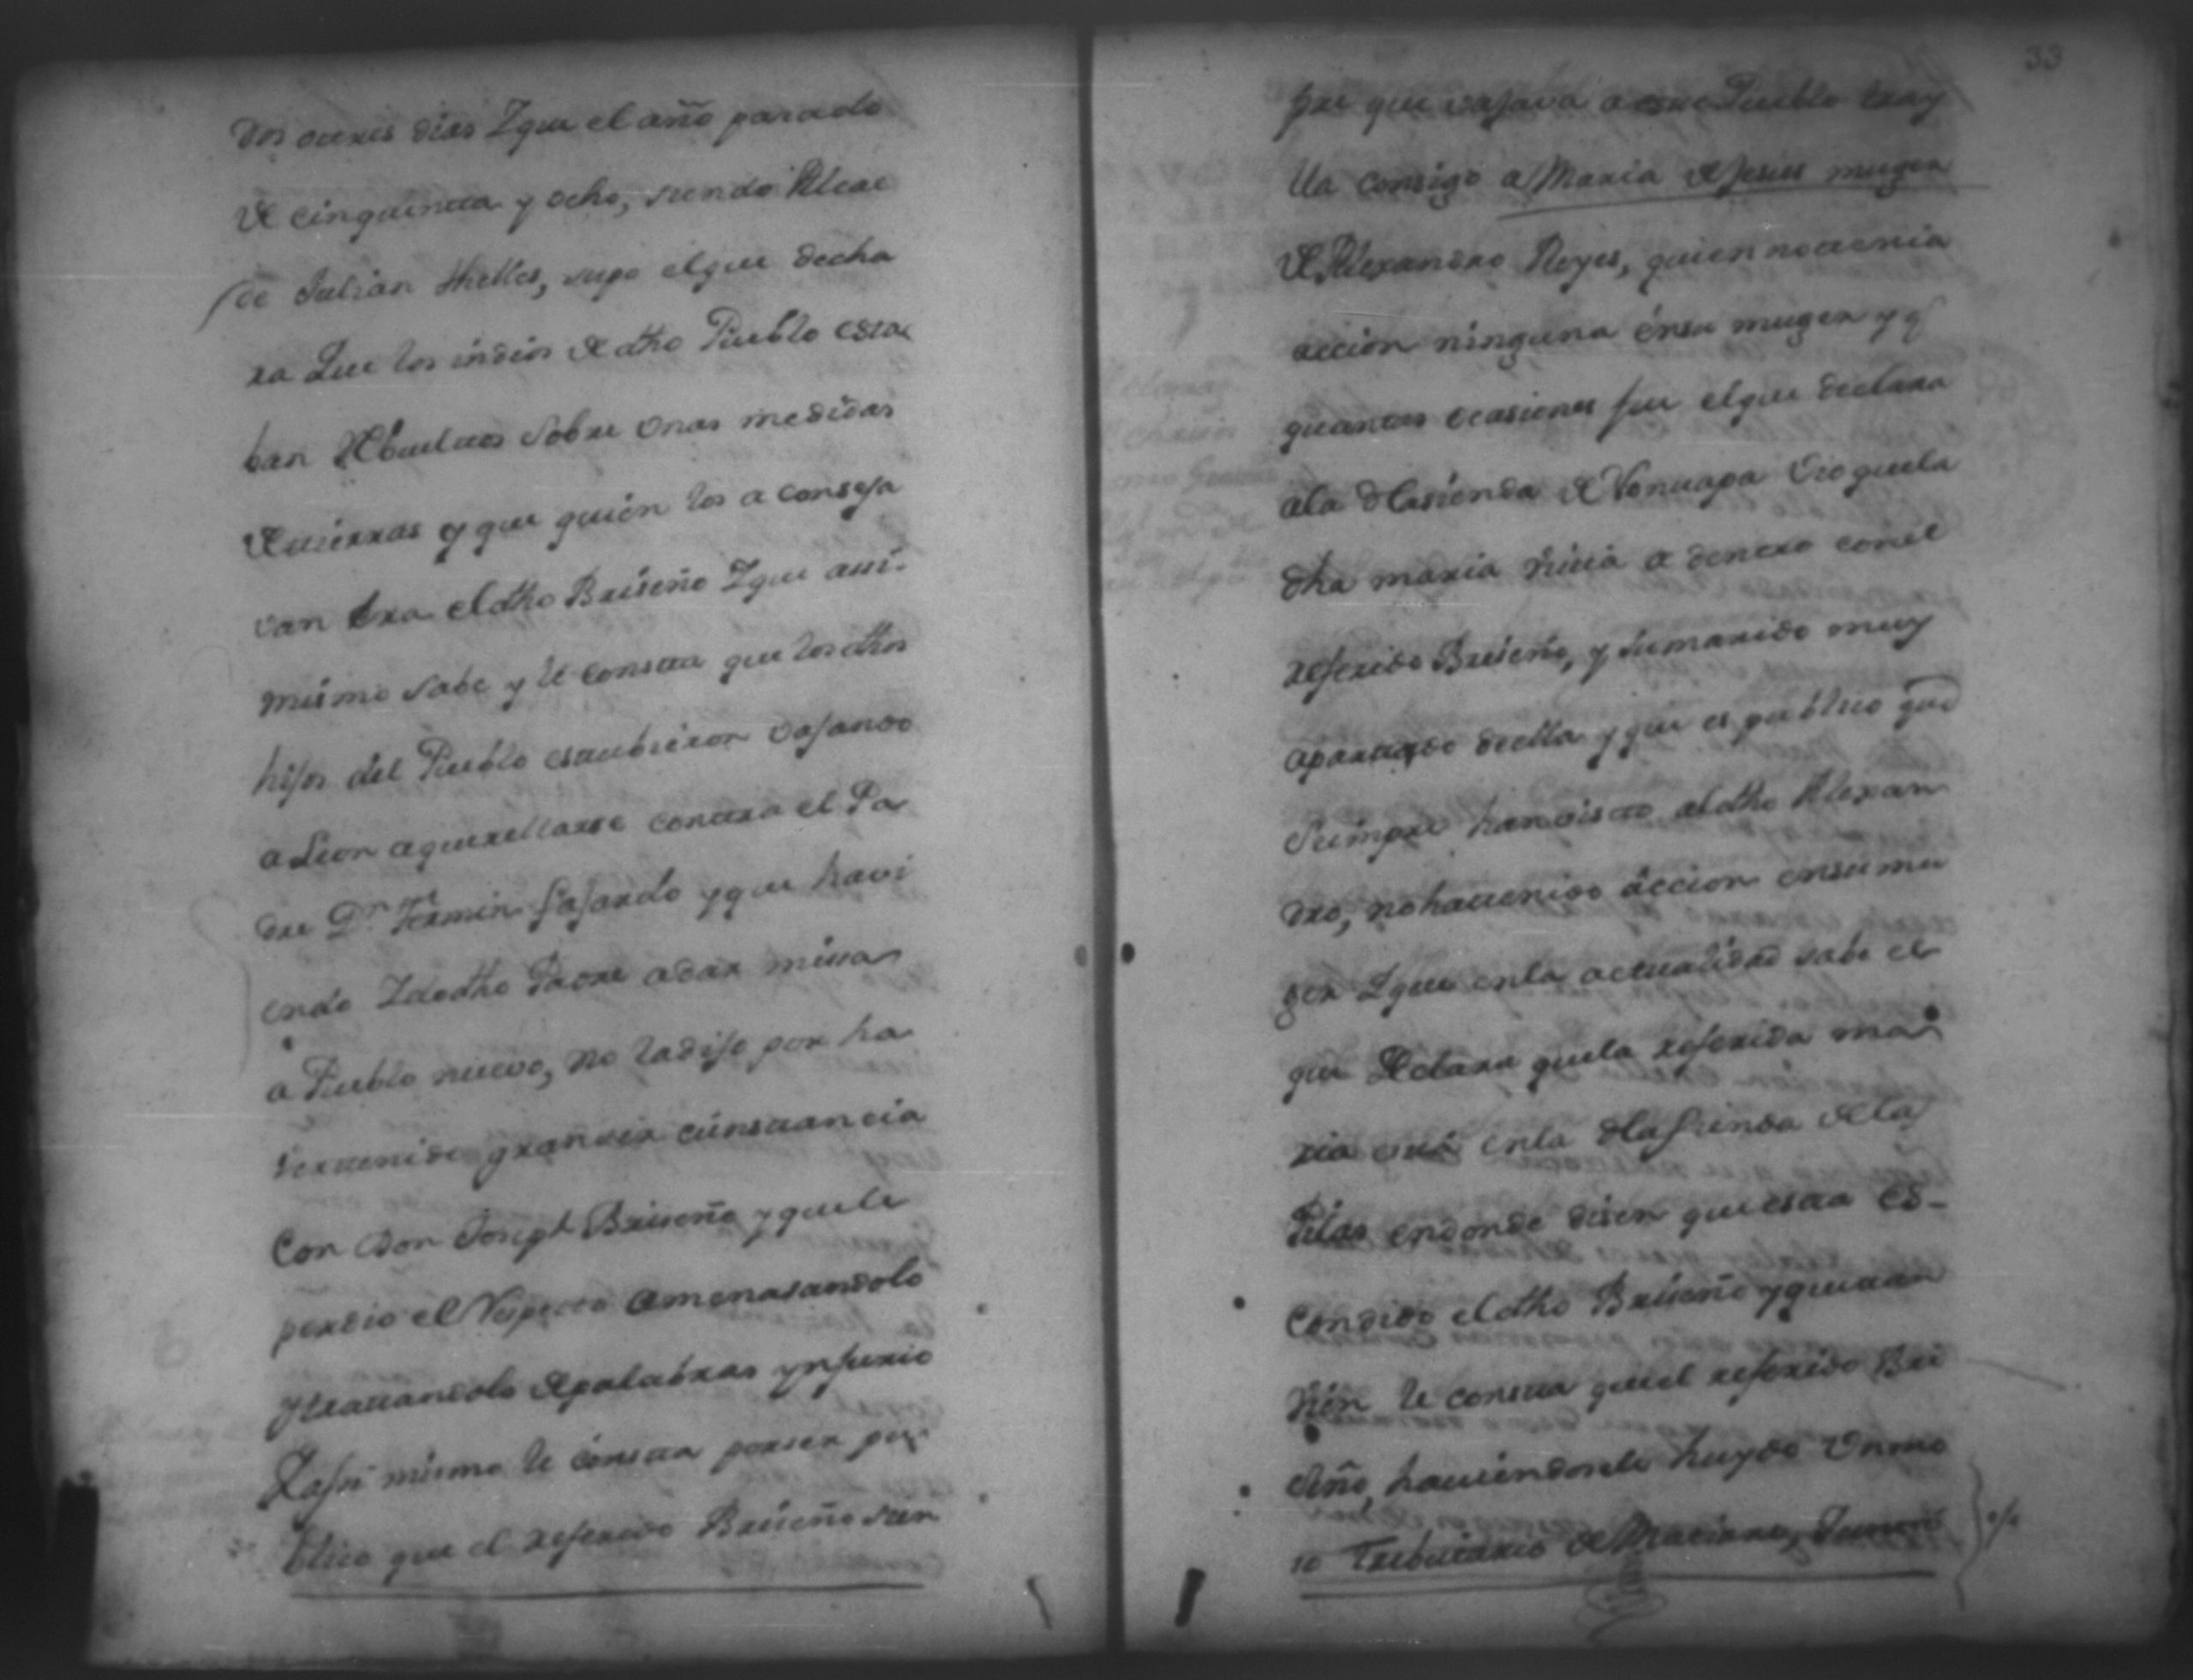 dos o tres dias Y que el año pasado
de cinquenta y ocho, siendo Alcal
de Julian thelles, supo el que decla
ra Que los indios de dho Pueblo esta
ban Rebueltos sobre Unas medidas
de tierras y que quien los aconseja
van Era el dho Briseño Y que asi
mismo sabe y le consta que los dhos
hijos del Pueblo estubieron vajando
a Leon a querellarse contra el Pa
dre Dn. Fermin fajardo y que havi
endo Ydo dho Padre a dar missa
a Pueblo nuevo, no la dijo por ha
ver tenido gran cinstancia
Con Don Joseph Briseño y que le
perdio el Respecto amenasandolo
y tratandolo de palabras ynjurio
Y asi mismo le consta por ser pu
blico que el referido Briseño siem
33
pre que vajava a este Pueblo tray
lla consigo a Maria de Jesus muger
de Alexandro Reyes, quien no tenia
accion ninguna en su muger y q
quantas ocasiones fue el que declara
a la Hasienda de Nonuapa Vio que la
dha maria vivia a dentro con el
referido Briseño, y su marido muy
apartado de ella y que es publico que
Siempre han visto al dho Alexan
dro, no ha tenido accion en su mu
ger Y que en la actualidad sabe el
que Declara que la referida ma
ria está en la Hasienda de las
Pilas en donde disen que esta es-
condido el dho Briseño y que tan
vien le consta que el referido Bri
seño, haviendosele huydo Un mo
so Tributario de